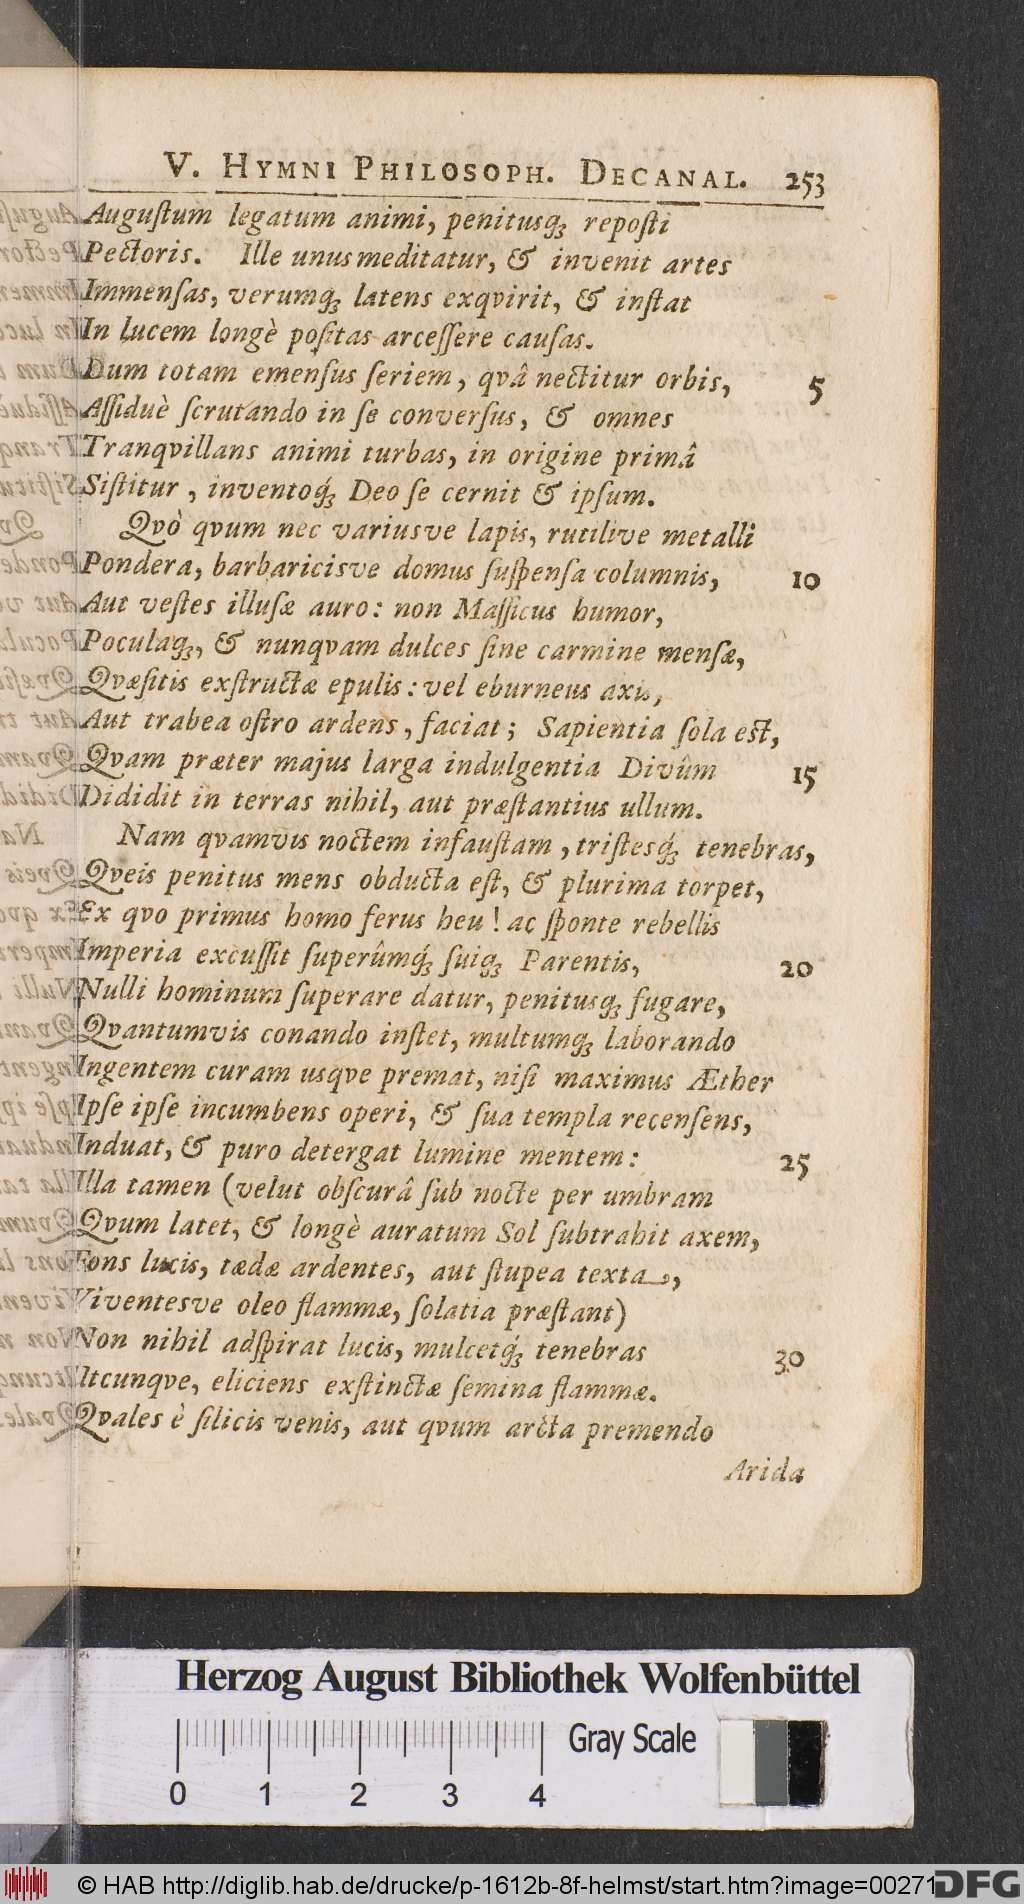 V. HYMNI PHILOSOPH. DECANAL. 253
Auguſtum legatum animi, penitusq́ꝫ repoſti
Pectoris. Ille unus meditatur, & invenit artes
Immenſas, verumq́ꝫ latens exqvirit, & inſtat
In lucem longè poſitas arceſſere cauſas.
Dum totam emenſus ſeriem, qvâ nectitur orbis, 5
Aſſiduè ſcrutando in ſe converſus, & omnes
Tranqvillans animi turbas, in origine primâ
Siſtitur, inventoq́ꝫ Deo ſe cernit & ipſum.
Qvò qvum nec variusve lapis, rutilive metalli
Pondera, barbaricisve domus ſuſpenſa columnis, 10
Aut veſtes illuſæ auro: non Maſſicus humor,
Poculaqꝫ, & nunqvam dulces ſine carmine menſæ,
Qvæſitis exſtructæ epulis: vel eburneus axis,
Aut trabea oſtro ardens, faciat; Sapientia ſola eſt,
Qvam præter majus larga indulgentia Divûm 15
Dididit in terras nihil, aut præſtantius ullum.
Nam qvamvis noctem infauſtam, triſtesq́ꝫ tenebras,
Qveis penitus mens obducta eſt, & plurima torpet,
Ex qvo primus homo ferus heu! ac ſponte rebellis
Imperia excuſſit ſuperûmq́ꝫ ſuiqꝫ Parentis, 20
Nulli hominum ſuperare datur, penitusqꝫ fugare,
Qvantumvis conando inſtet, multumqꝫ laborando
Ingentem curam usqve premat, niſi maximus Æther
Ipſe ipſe incumbens operi, & ſua templa recenſens,
Induat, & puro detergat lumine mentem: 25
Illa tamen (velut obſcurâ ſub nocte per umbram
Qvum latet, & longè auratum Sol ſubtrahit axem,
Fons lucis, tædæ ardentes, aut ſtupea texta,
Viventesve oleo flammæ, ſolatia præſtant)
Non nihil adſpirat lucis, mulcetq́ꝫ tenebras 30
Utcunqve, eliciens exſtinctæ ſemina flammæ.
Qvales è ſilicis venis, aut qvum arcta premendo
Arida
Herzog August Bibliothek Wolfenbüttel
Gray Scale
0 1 2 3 4
© HAB http://diglib.hab.de/drucke/p-1612b-8f-helmst/start.htm?image=00271
DFG